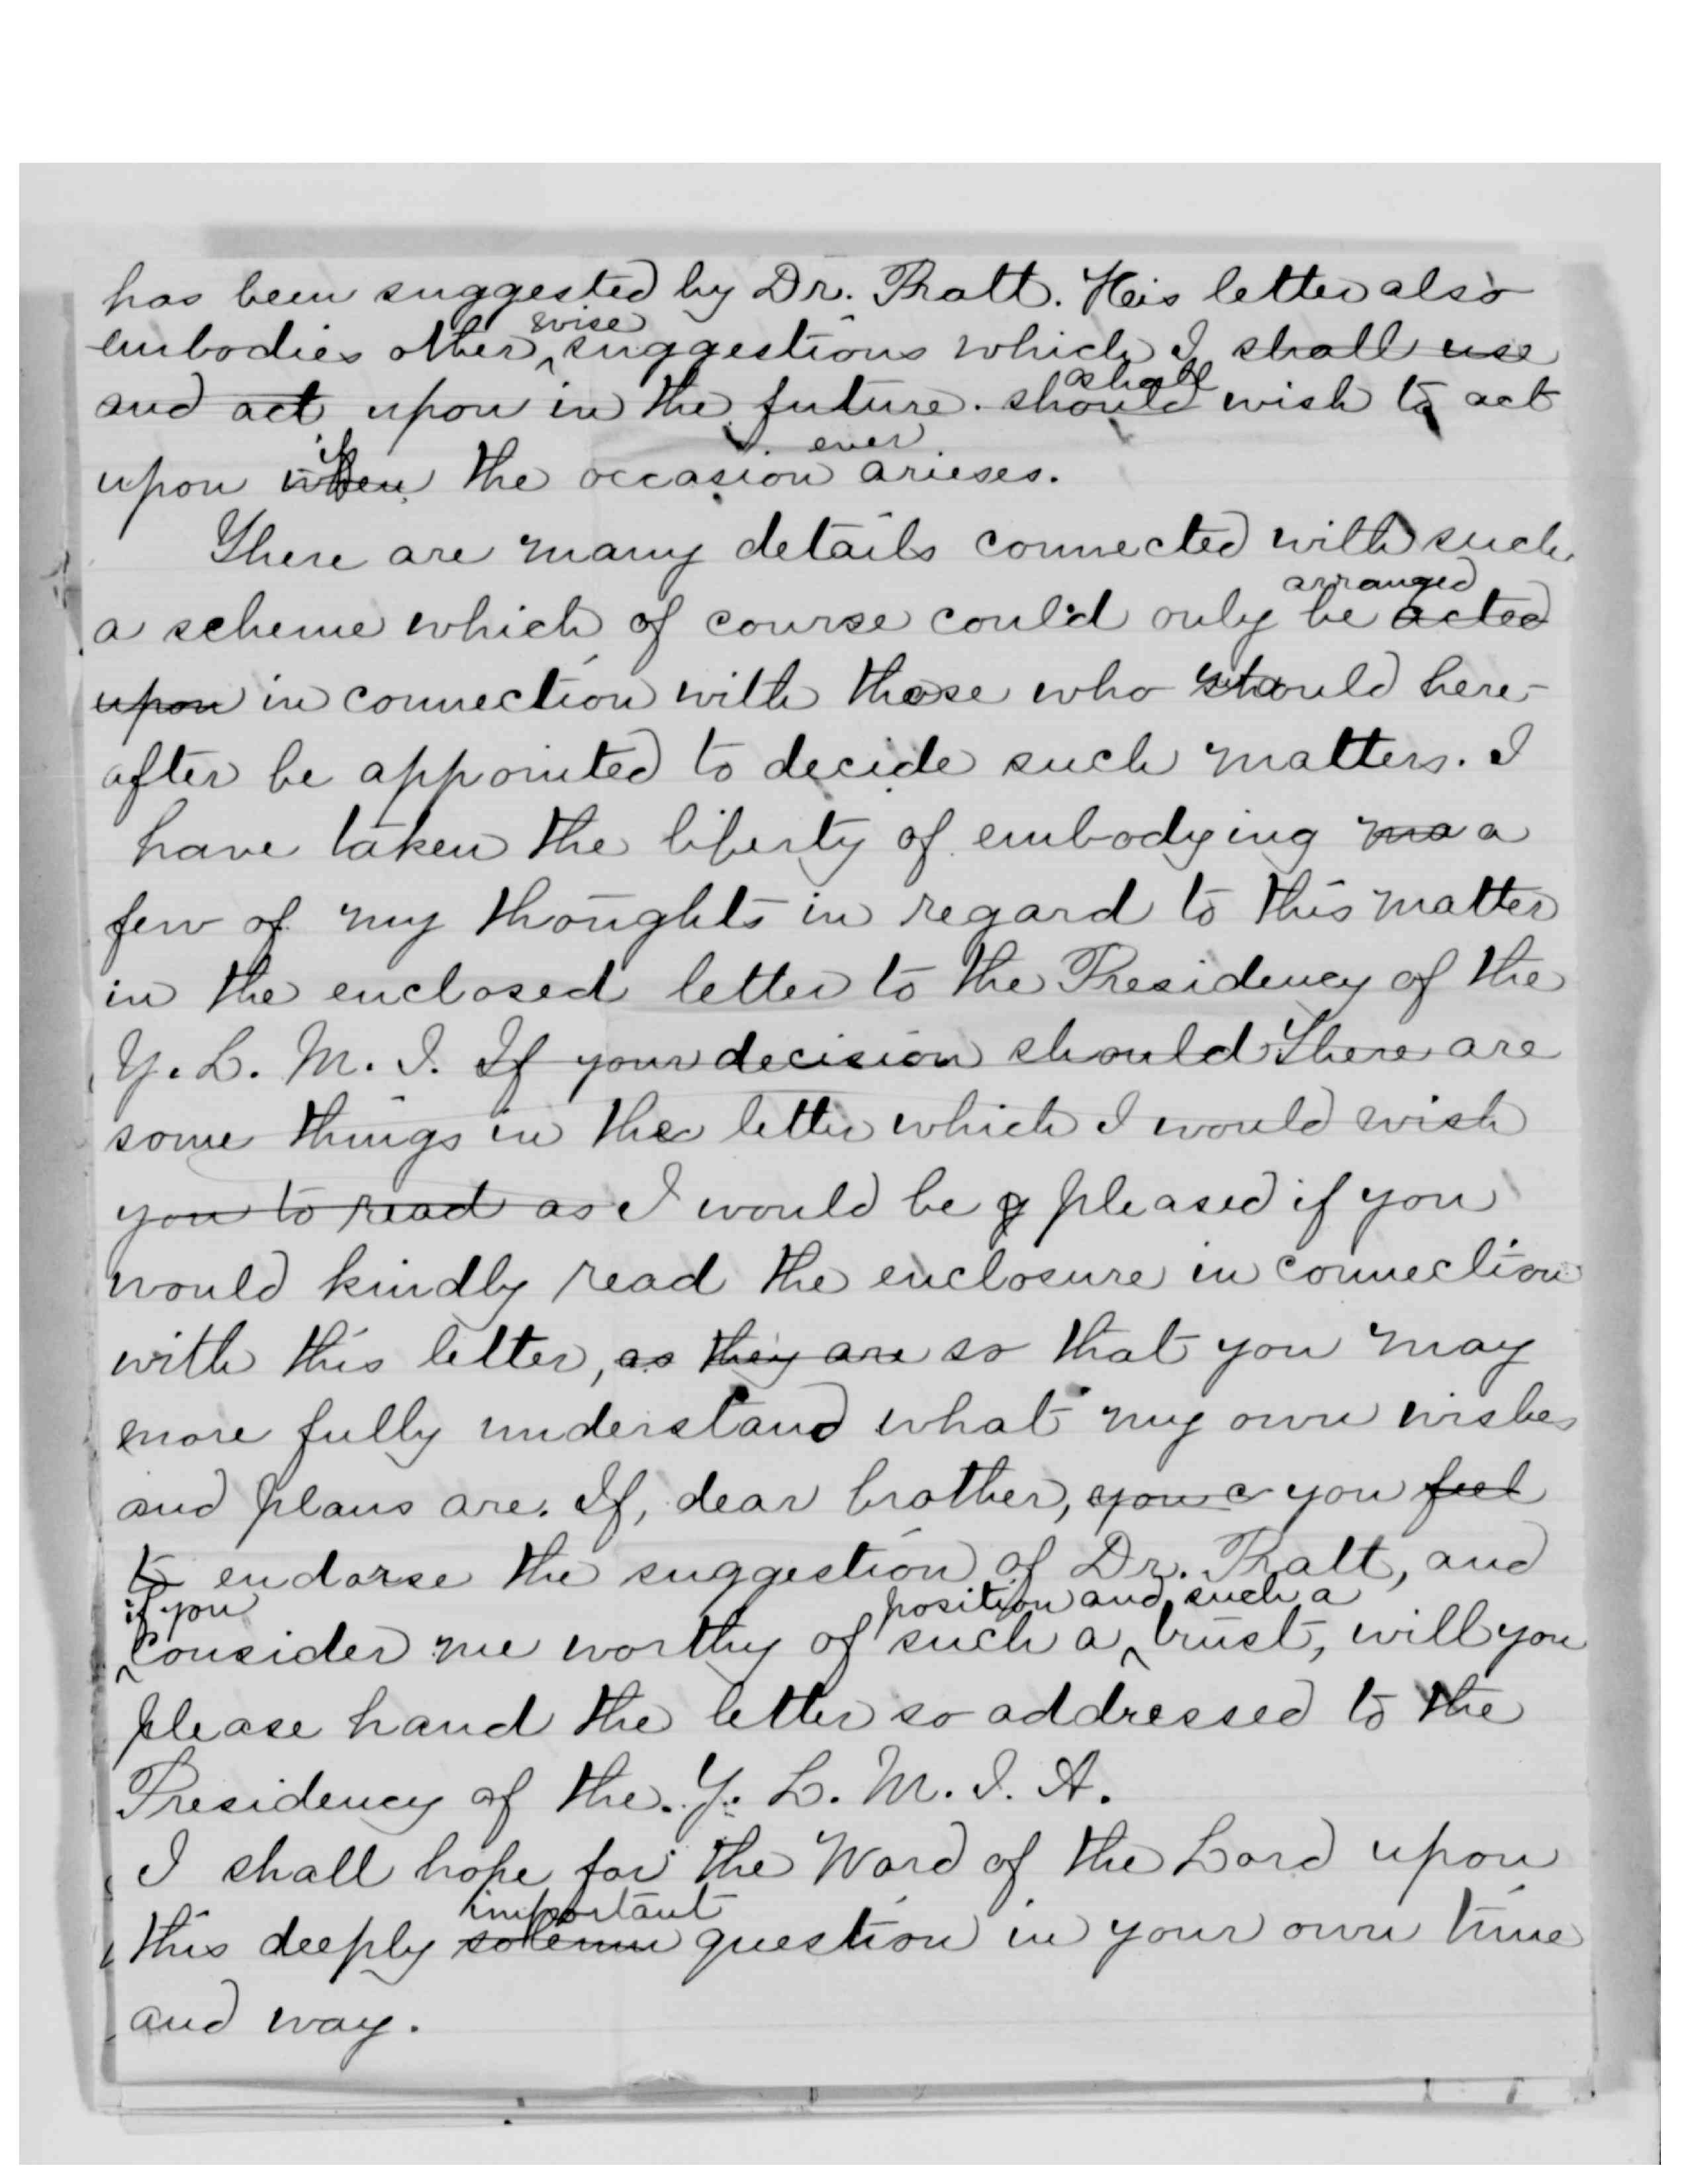 has been suggested by Dr. Pratt. His letter also
wise
embodies other suggestions which I shall use
shall
and act upon in the future. should wish to act
if ever
upon when the occasion arieses.
There are many details connected with such
arranged
a scheme which of course could only be acted
upon in connection with those who should here-
after be appointed to decide such matters. I
have taken the liberty of embodying ma a
few of my thoughts in regard to this matter
in the enclosed letter to the Presidency of the
Y. L. M. I. If your decision should There are
some things in the letter which I would wish
you to read as I would be g pleased if you
would kindly read the enclosure in connection
with this letter, as they are so that you may
more fully understand what my own wishes
and plans are. If, dear brother, you c you feel
to endorse the suggestion of Dr. Pratt, and
if you position and such a
consider me worthy of such a trust, will you
please hand the letter so addressed to the
Presidency of the Y. L. M. I. A.
I shall hope for the Word of the Lord upon
important
this deeply solemn question in your own time
and way.